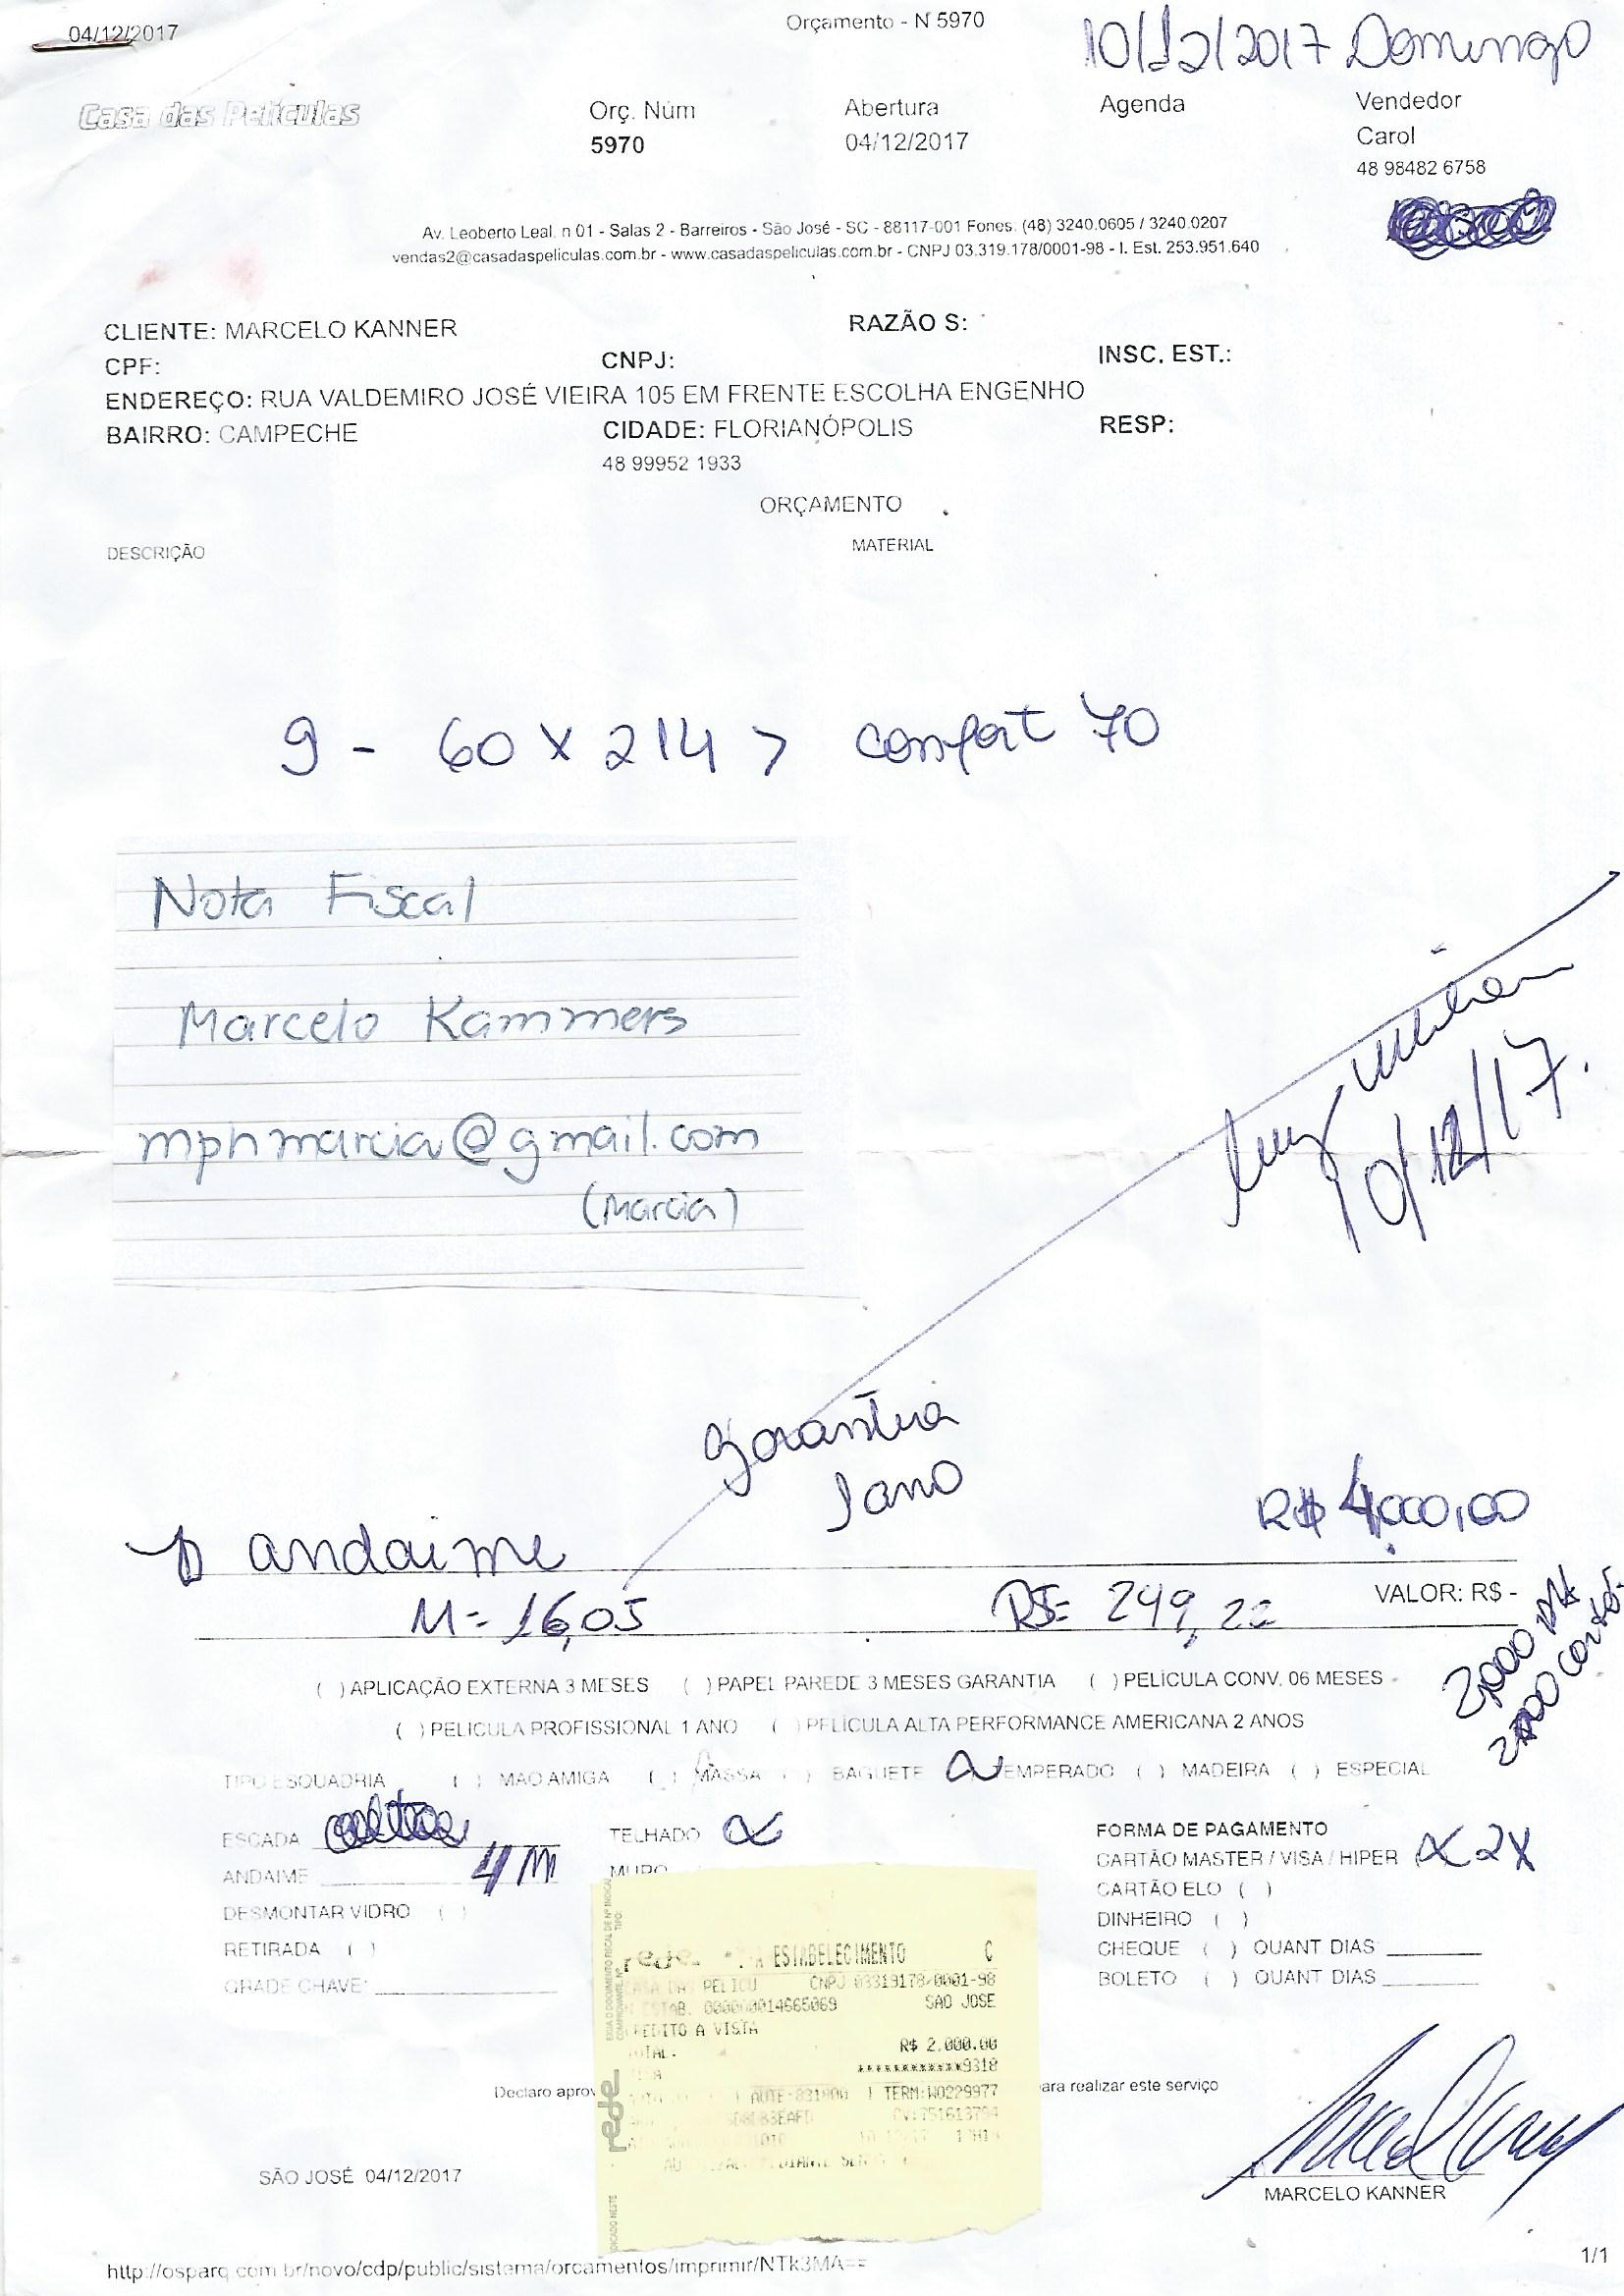 04/12/2017
Orçamento - N 5970
10/12/2017 Domingo
Casa das Películas
Orç. Núm
Abertura
Agenda
Vendedor
5970
04/12/2017
Carol
48 98482 6758
Av. Leoberto Leal. n 01 - Salas 2 - Barreiros - São José - SC - 88117-001 Fones: (48) 3240.0605 / 3240.0207
vendas2@casadaspeliculas.com.br - www.casadaspeliculas.com.br - CNPJ 03.319.178/0001-98 - I. Est. 253.951.640
CLIENTE: MARCELO KANNER
RAZÃO S:
CPF:
CNPJ:
INSC. EST.:
ENDEREÇO: RUA VALDEMIRO JOSÉ VIEIRA 105 EM FRENTE ESCOLHA ENGENHO
BAIRRO: CAMPECHE
CIDADE: FLORIANÓPOLIS
RESP:
48 99952 1933
ORÇAMENTO
DESCRIÇÃO
MATERIAL
9 - 60 x 214 > confort 70
Nota Fiscal
Marcelo Kammers
mphmarcia@gmail.com
(Marcia)
10/12/17.
Garantia
1 ano
R$ 4.000,00
andaime
M = 16,05
R$ = 249,22
VALOR: R$ -
2,000
2,000 cartão
( ) APLICAÇÃO EXTERNA 3 MESES ( ) PAPEL PAREDE 3 MESES GARANTIA ( ) PELÍCULA CONV. 06 MESES -
( ) PELICULA PROFISSIONAL 1 ANO ( ) PELÍCULA ALTA PERFORMANCE AMERICANA 2 ANOS
TIPO ESQUADRIA ( ) MAO AMIGA ( ) MASSA ( ) BAGUETE TEMPERADO ( ) MADEIRA ( ) ESPECIAL
ESCADA
TELHADO
FORMA DE PAGAMENTO
ANDAIME 4 m
MURO
CARTÃO MASTER / VISA / HIPER 2X
CARTÃO ELO ( )
DESMONTAR VIDRO ( )
DINHEIRO ( )
RETIRADA ( )
CHEQUE ( ) QUANT DIAS
GRADE CHAVE:
BOLETO ( ) QUANT DIAS
rede
ESTABELECIMENTO C
CASA DAS PELICU CNPJ 03319178/0001-98
ESTAB. 000000014665069 SAO JOSE
CREDITO A VISTA
TOTAL. R$ 2.000.00
************9318
AUTE:031800 TERM:W0229977
rede
Declaro aprov
para realizar este serviço
SÃO JOSÉ 04/12/2017
MARCELO KANNER
http://osparq.com.br/novo/cdp/public/sistema/orcamentos/imprimir/NTk3MA==
1/1